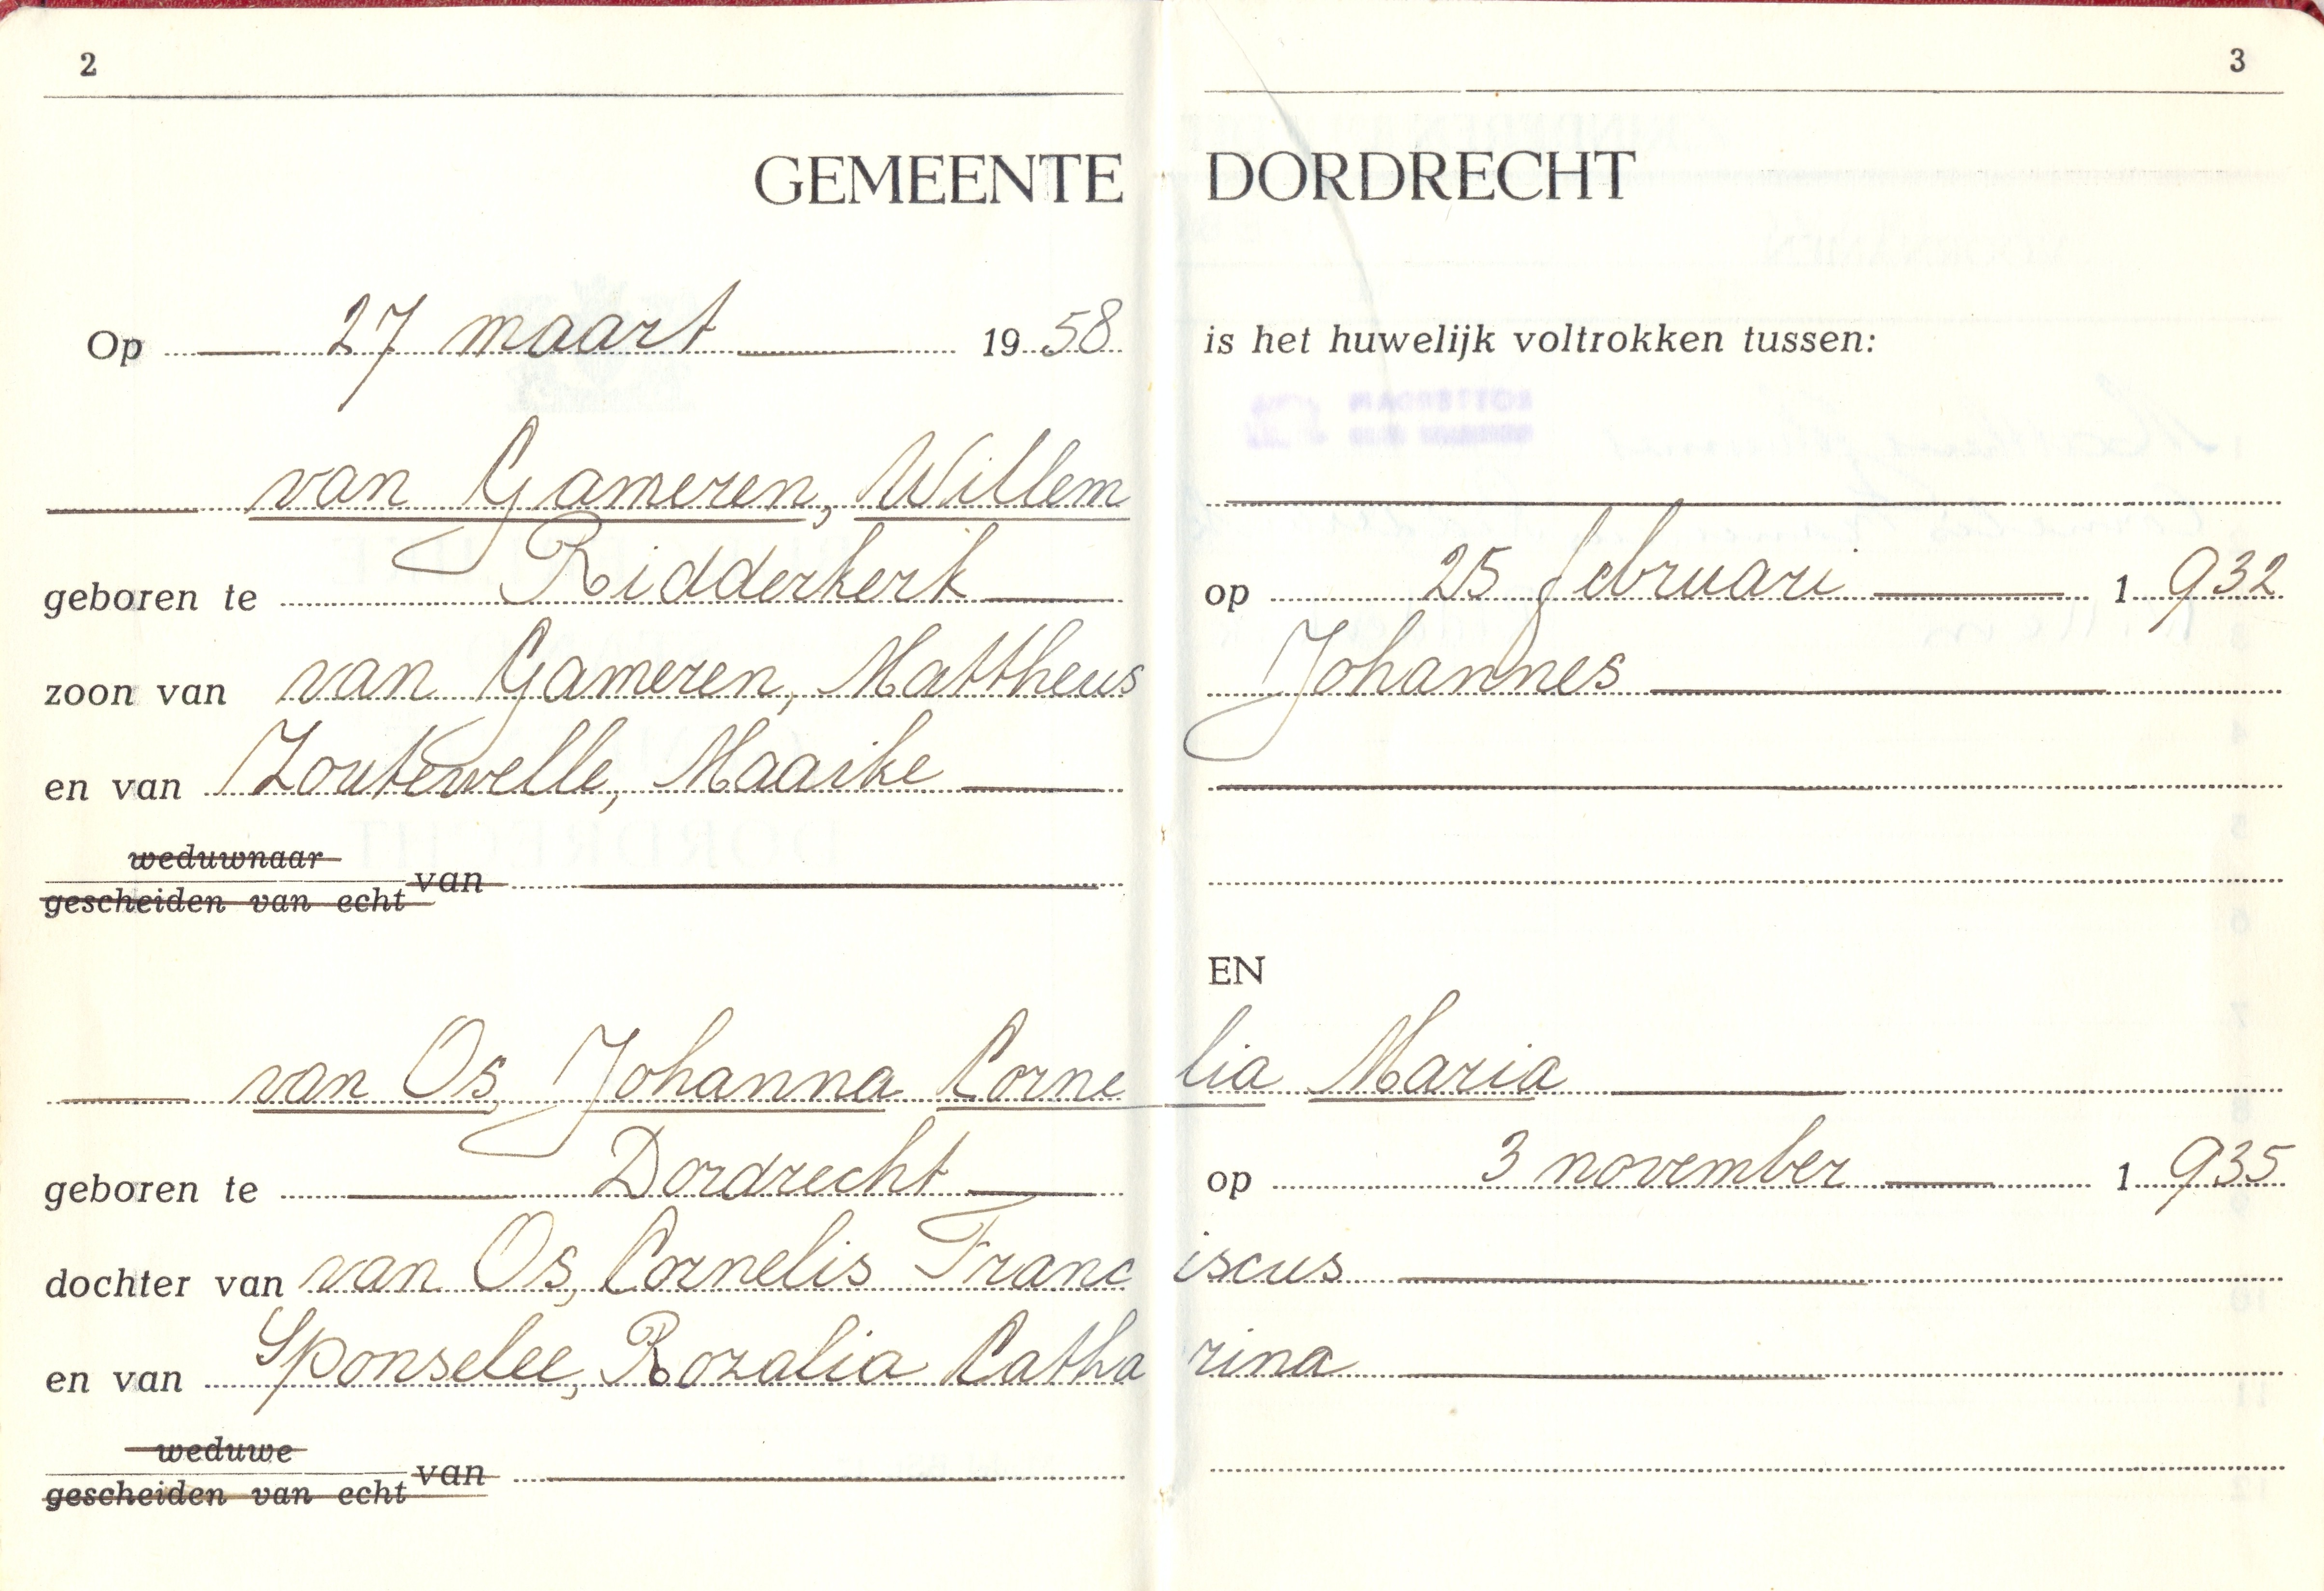 2 3
GEMEENTE DORDRECHT
Op 27 maart 1958 is het huwelijk voltrokken tussen:
van Gameren, Willem
geboren te Ridderkerk op 25 februari 1932
zoon van van Gameren, Mattheus Johannes
en van Zoutewelle, Maaike
weduwnaar
gescheiden van echt van
EN
van Os, Johanna Cornelia Maria
geboren te Dordrecht op 3 november 1935
dochter van van Os, Cornelis Franciscus
en van Sponselee, Rozalia Catharina
weduwe
gescheiden van echt van